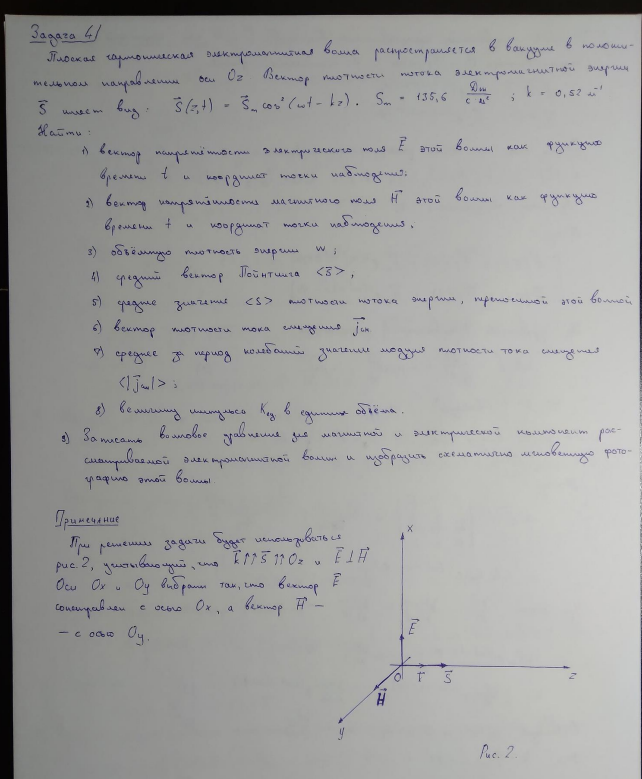 Задача 4
Плоская гармоническая электромагнитная волна распространяется в вакууме в положи-
тельном направлении оси Oz Вектор плотности потока электромагнитной энергии
S⃗ имеет вид: S⃗(z,t) = S⃗m cos²(ωt - kz). Sm = 135,6 Дж/(с·м²) ; k = 0,52 м⁻¹
Найти:
1) вектор напряжённости электрического поля E⃗ этой волны как функцию
времени t и координат точки наблюдения;
2) вектор напряжённости магнитного поля H⃗ этой волны как функцию
времени t и координат точки наблюдения.
3) объёмную плотность энергии w;
4) средний вектор Пойнтинга <S⃗>,
5) среднее значение <S> плотности потока энергии, переносимой этой волной
6) вектор плотности тока смещения j⃗см
7) среднее за период колебаний значение модуля плотности тока смещения
<|j⃗см|>;
8) величину импульса Kед в единице объёма.
9) Записать волновое уравнение для магнитной и электрической компонент рас-
сматриваемой электромагнитной волны и изобразить схематично мгновенную фото-
графию этой волны
Примечание
При решении задачи будет использоваться
рис. 2, учитывающий, что k⃗↑↑S⃗↑↑Oz и E⃗⊥H⃗
Оси Ox и Oy выбраны так, что вектор E⃗
сонаправлен с осью Ox, а вектор H⃗ -
- с осью Oy.
x
E⃗
O
S⃗
z
H⃗
y
Рис. 2.